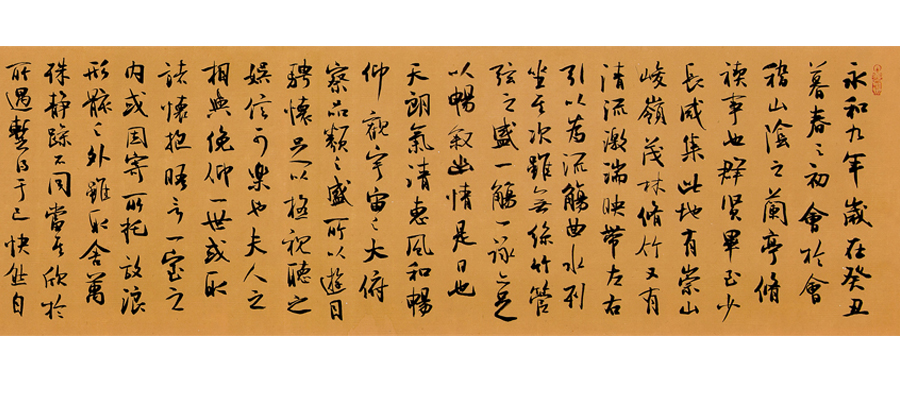 永和九年歲在癸丑
暮春之初會於會
稽山陰之蘭亭脩
禊事也群賢畢至少
長咸集此地有崇山
峻嶺茂林脩竹又有
清流激湍映帶左右
引以為流觴曲水列
坐其次雖無絲竹管
弦之盛一觴一詠亦足
以暢敘幽情是日也
天朗氣清惠風和暢
仰觀宇宙之大俯
察品類之盛所以遊目
騁懷足以極視聽之
娛信可樂也夫人之
相與俛仰一世或取
諸懷抱晤言一室之
內或因寄所托放浪
形骸之外雖取舍萬
殊靜躁不同當其欣於
所遇暫得于己快然自